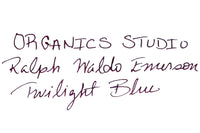 ORGANICS STUDIO
Ralph Waldo Emerson
Twilight Blue